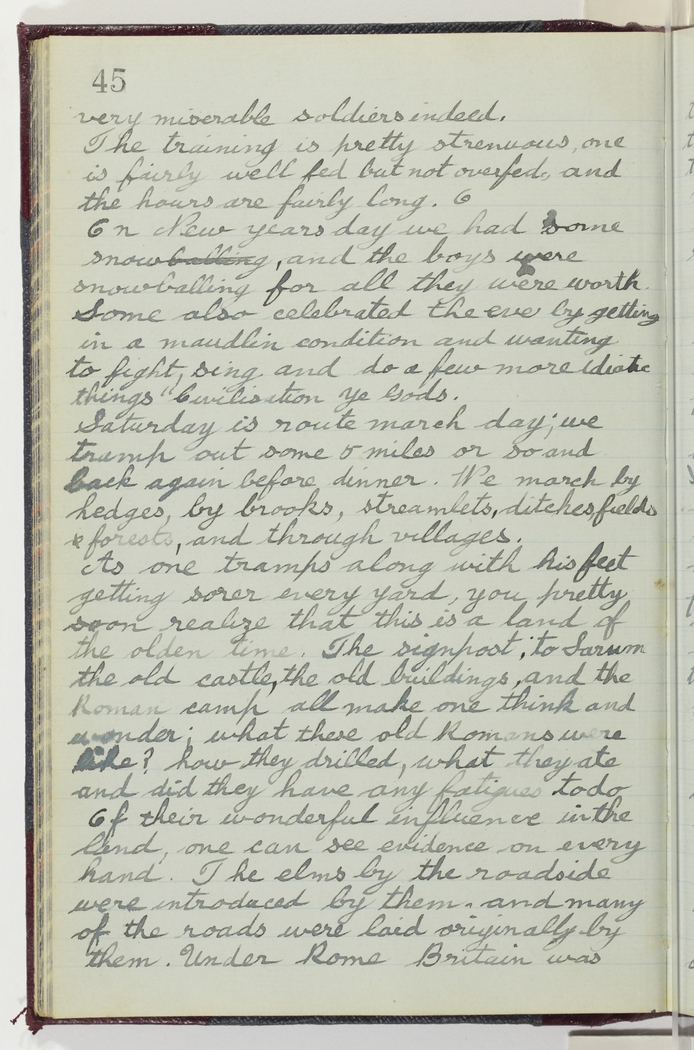 45
very miserable soldiers indeed.
The training is pretty strenuous, one
is fairly well fed but not overfed, and
the hours are fairly long. O
On New years day we had some
snowballing, and the boys were
snowballing for all they were worth.
Some also celebrated the eve by getting
in a maudlin condition and wanting
to fight, sing and do a few more idiotic
things "Civilisation ye Gods.
Saturday is route march day; we
tramp out some 5 miles or so and
back again before dinner. We march by
hedges, by brooks, streamlets, ditches fields
& forests, and through villages.
As one tramps along with his feet
getting sorer every yard, you pretty
soon realize that this is a land of
the olden time. The signpost, 'to Sarum
the old castle, the old buildings, and the
Roman camp all make one think and
wonder; what these old Romans were
like? how they drilled, what they ate
and did they have any fatigues to do
Of their wonderful influence in the
land, one can see evidence on every
hand. The elms by the roadside
were introduced by them. and many
of the roads were laid originally by
them. Under Rome Britain was